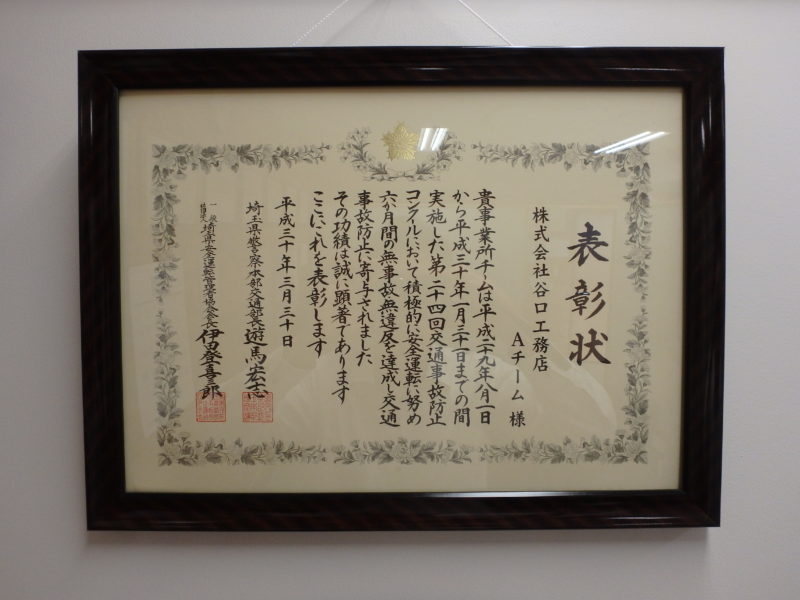 表彰状
株式会社谷口工務店
Aチーム 様
貴事業所チームは平成二十九年八月一日
から平成三十年一月三十一日までの間
実施した第二十四回交通事故防止
コンクールにおいて積極的に安全運転に努め
六か月間の無事故無違反を達成し交通
事故防止に寄与されました
その功績は誠に顕著であります
ここにこれを表彰します
平成三十年三月三十日
埼玉県警察本部交通部長 遊馬宏志
一般社団法人 埼玉県安全運転管理者協会会長 伊田登喜三郎